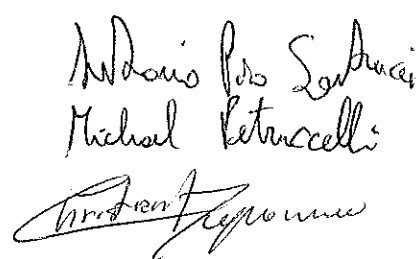 Antonio Pio Santucci
Michael Petruccelli
Christian